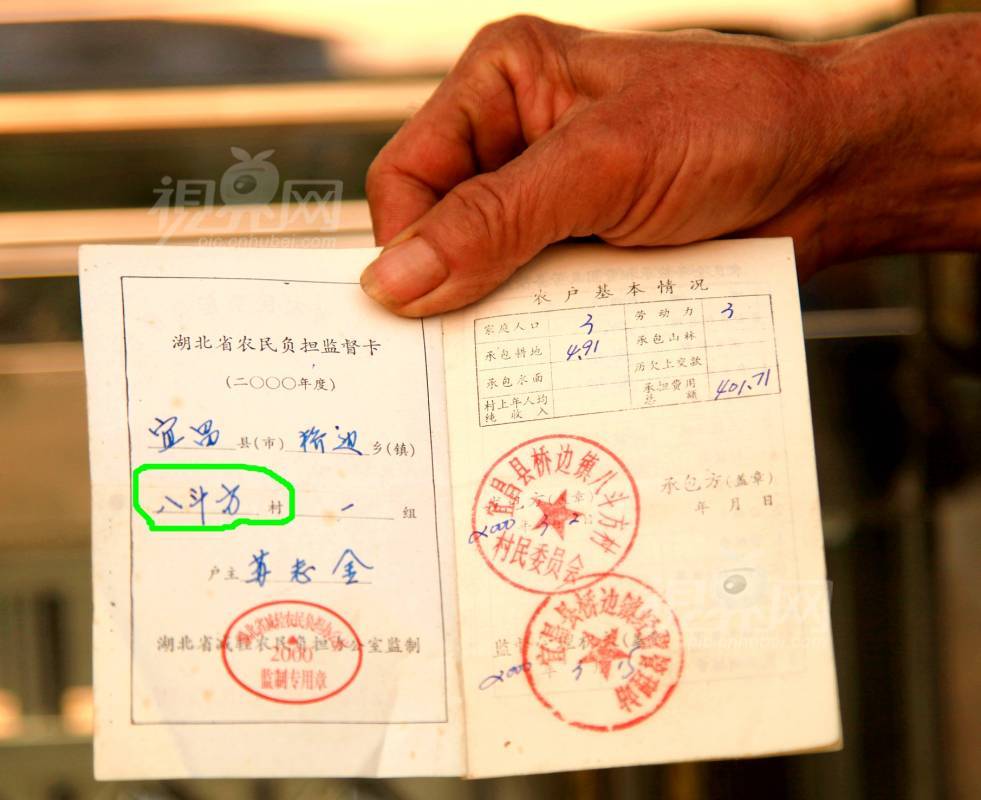 视界网
pic.cnhubei.com
湖北省农民负担监督卡
(二〇〇〇年度)
宜昌县(市)桥边乡(镇)
八斗方村一组
户主苏志金
湖北省减轻农民负担办公室监制
湖北省减轻农民负担办公室
2000
监制专用章
农户基本情况
家庭人口 3 劳动力 3
承包耕地 4.91 承包山林
承包水面 历欠上交款
村上年人均纯收入 承担费用总额 401.71
发包方(盖章) 承包方(盖章)
2000年3月2日 年月日
宜昌县桥边镇八斗方村
村民委员会
宜昌县桥边镇经营管理站
2000年3